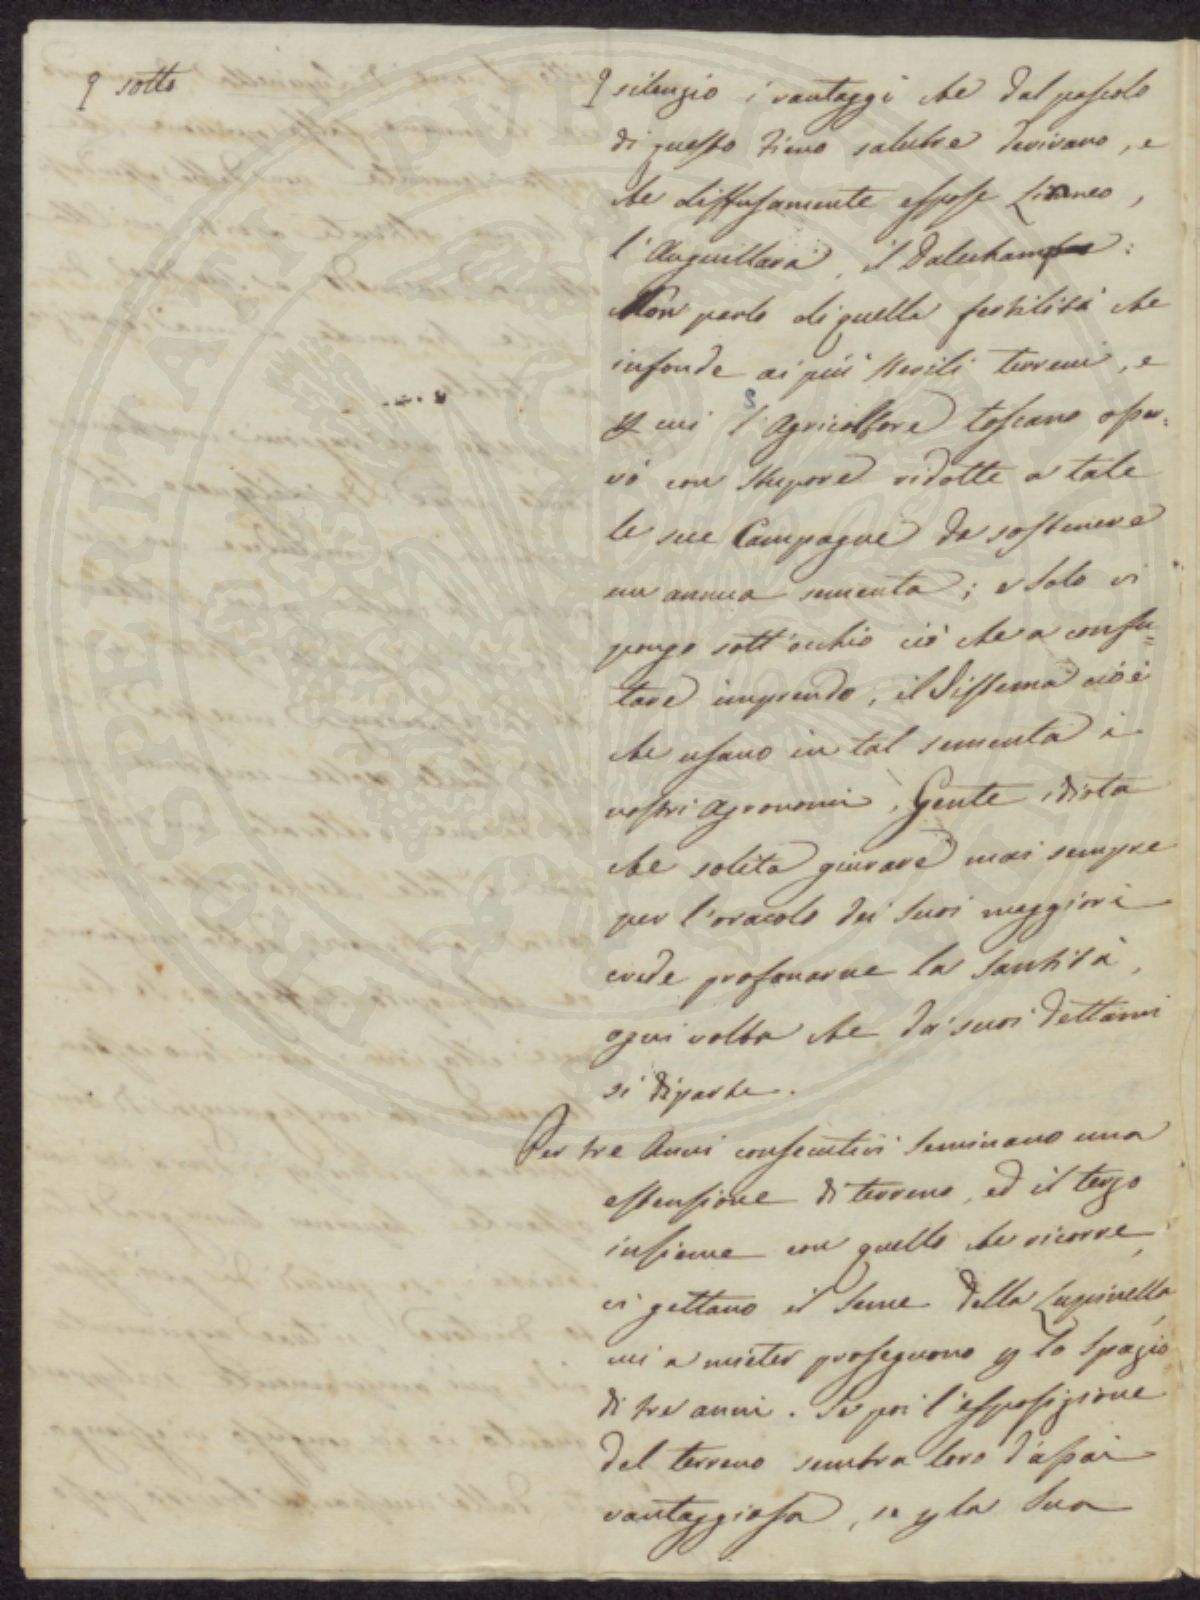 sotto
silenzio i vantaggi che dal pascolo
di questo fieno salubre derivano, e
che diffusamente espose Linneo,
l'Anguillara, il Dalechamp:
Non parlo di quella fertilità che
infonde ai più sterili terreni, e
p cui l'Agricoltore toscano osser=
vò con stupore ridotte a tale
le sue Campagne da sostenere
un annua sementa; e solo vi
pongo sott'occhio ciò che a confu=
tare imprendo, il Sistema cioè
che usano in tal sementa i
nostri Agronomi. Gente idiota
che solita giurare mai sempre
per l'oracolo dei Suoi maggiori
crede profanarne la Santità,
ogni volta che da' suoi dettami
si diparte.
Per tre Anni consecutivi Seminano una
estensione di terreno, ed il terzo
insieme con quello che ricorre,
vi gettano il Seme della Lupinella,
cui a mieter proseguono p lo Spazio
di tre anni. Se poi l'esposizione
del terreno sembra loro d'assai
vantaggiosa, se p la Sua
PROSPERITATI PUBLICAE